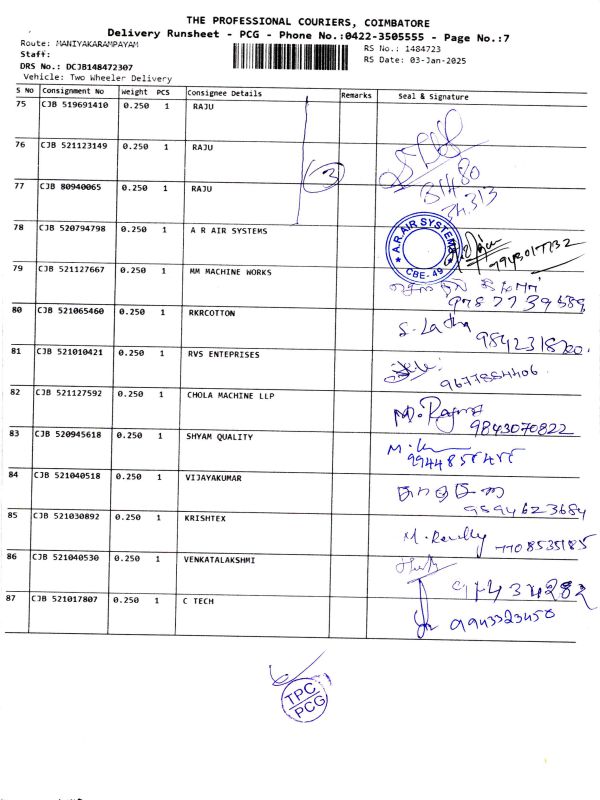 THE PROFESSIONAL COURIERS, COIMBATORE
Delivery Runsheet - PCG - Phone No.:0422-3505555 - Page No.:7
Route: MANIYAKARAMPAYAM
RS No.: 1484723
Staff:
RS Date: 03-Jan-2025
DRS No.: DCJB148472307
Vehicle: Two Wheeler Delivery
S No Consignment No Weight PCS Consignee Details Remarks Seal & Signature
75 CJB 519691410 0.250 1 RAJU
76 CJB 521123149 0.250 1 RAJU
3
77 CJB 80940065 0.250 1 RAJU
78 CJB 520794798 0.250 1 A R AIR SYSTEMS
A.R.AIR SYSTEMS
CBE-49
79 CJB 521127667 0.250 1 MM MACHINE WORKS
80 CJB 521065460 0.250 1 RKRCOTTON S. Latha
81 CJB 521010421 0.250 1 RVS ENTEPRISES
9677884406
82 CJB 521127592 0.250 1 CHOLA MACHINE LLP
9843070822
83 CJB 520945618 0.250 1 SHYAM QUALITY
84 CJB 521040518 0.250 1 VIJAYAKUMAR
85 CJB 521030892 0.250 1 KRISHTEX
7708535185
86 CJB 521040530 0.250 1 VENKATALAKSHMI
87 CJB 521017807 0.250 1 C TECH
9943323450
TPC
PCG